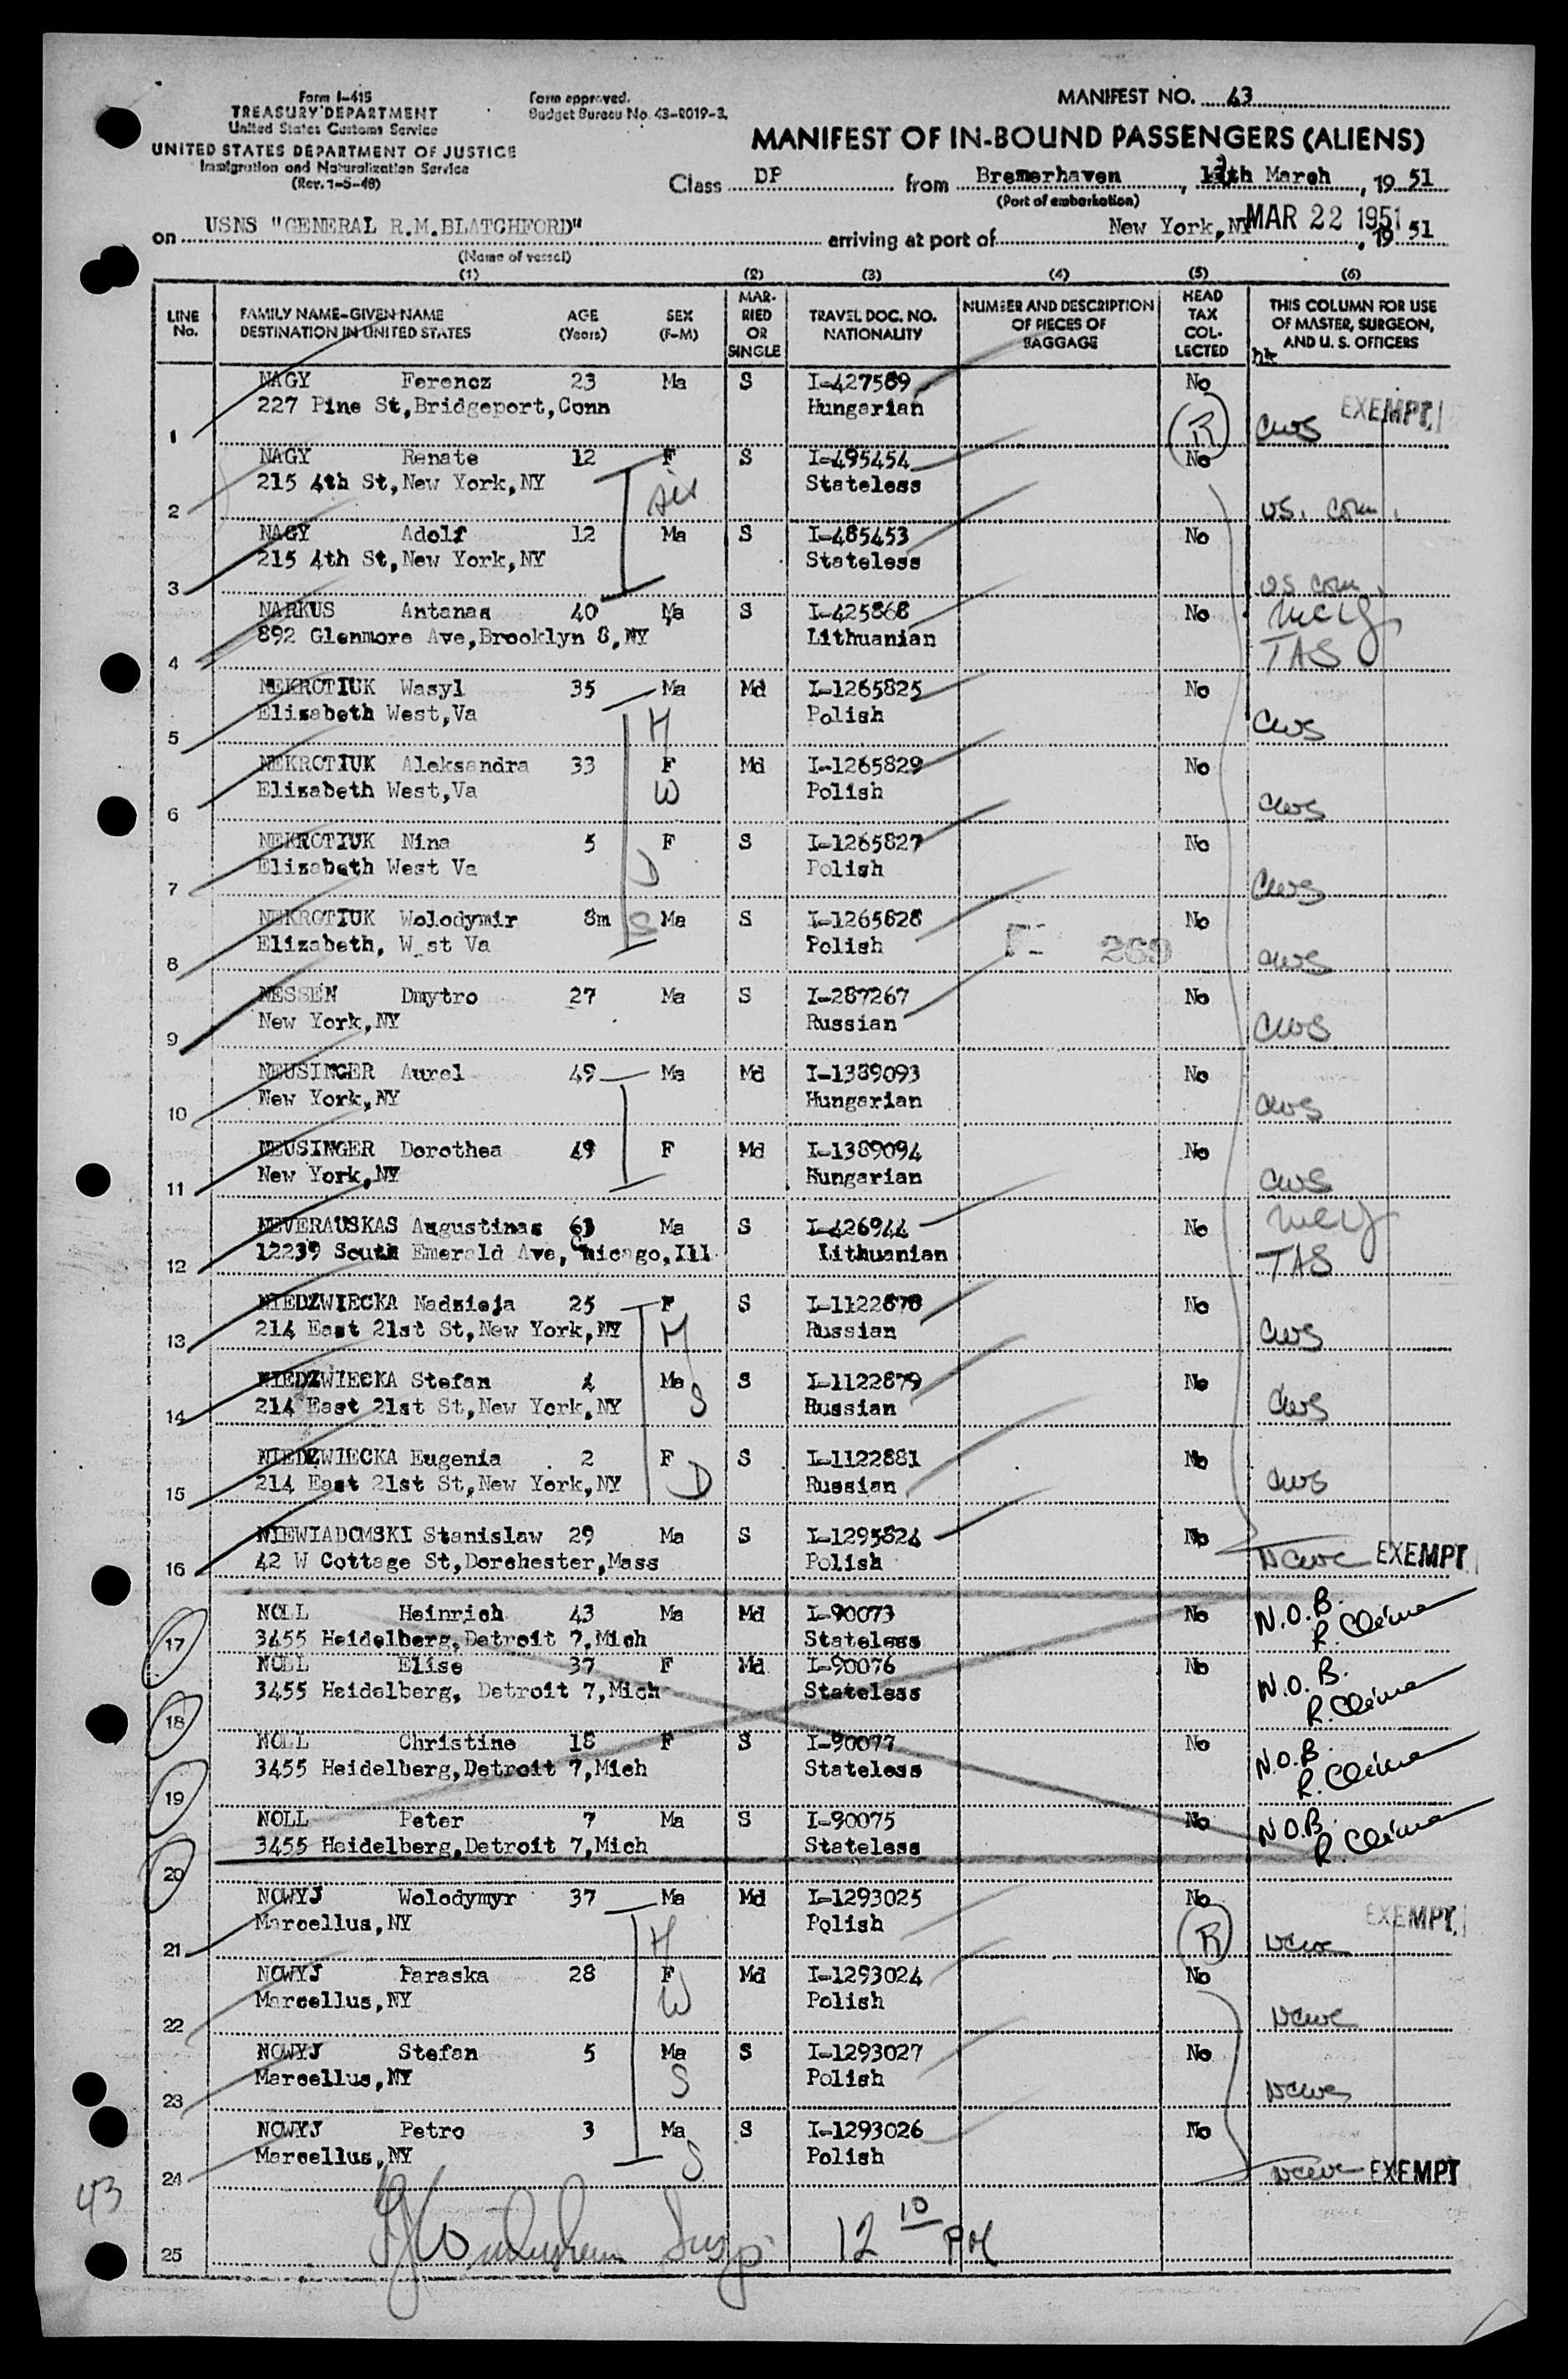 Form I-415
TREASURY DEPARTMENT
United States Customs Service
UNITED STATES DEPARTMENT OF JUSTICE
Immigration and Naturalization Service
(Rev. 1-5-48)
Form approved.
Budget Bureau No. 43-R019-3.
MANIFEST NO. 43
MANIFEST OF IN-BOUND PASSENGERS (ALIENS)
Class DP from Bremerhaven, 12th March, 1951
(Port of embarkation)
on USNS "GENERAL R.M.BLATCHFORD" arriving at port of New York,NY MAR 22 1951, 1951
(Name of vessel)
(1) (2) (3) (4) (5) (6)
LINE No. FAMILY NAME-GIVEN NAME DESTINATION IN UNITED STATES AGE (Years) SEX (F-M) MARRIED OR SINGLE TRAVEL DOC. NO. NATIONALITY NUMBER AND DESCRIPTION OF PIECES OF BAGGAGE HEAD TAX COLLECTED THIS COLUMN FOR USE OF MASTER, SURGEON, AND U. S. OFFICERS
NAGY Ferencz 23 Ma S I-427589 No
227 Pine St,Bridgeport,Conn Hungarian EXEMPT
1 R CWS
NAGY Renate 12 F S I-495454 No
215 4th St,New York,NY Stateless
2 sis US. com.
NAGY Adolf 12 Ma S I-485453 No
215 4th St,New York,NY Stateless
3 US com.
NARKUS Antanas 40 Ma S I-425868 No
892 Glenmore Ave,Brooklyn 8,NY Lithuanian
4 TAS
NEKROTIUK Wasyl 35 Ma Md I-1265825 No
Elizabeth West,Va Polish
5 H CWS
NEKROTIUK Aleksandra 33 F Md I-1265829 No
Elizabeth West,Va W Polish
6 CWS
NEKROTIUK Nina 5 F S I-1265827 No
Elizabeth West Va D Polish
7 CWS
NEKROTIUK Wolodymir 8m S Ma S I-1265828 No
Elizabeth, W st Va Polish 269
8 CWS
NESSEN Dmytro 27 Ma S I-287267 No
New York,NY Russian
9 CWS
NEUSINGER Aurel 49 Ma Md I-1389093 No
New York,NY Hungarian
10 CWS
NEUSINGER Dorothea 49 F Md I-1389094 No
New York,NY Hungarian
11 CWS
NEVERAUSKAS Augustinas 63 Ma S I-426944 No
12239 South Emerald Ave, Chicago,Ill Lithuanian
12 TAS
NIEDZWIECKA Nadzieja 25 F S I-1122878 No
214 East 21st St,New York,NY Russian
13 H CWS
NIEDZWIECKA Stefan 4 Ma S I-1122879 No
214 East 21st St,New York,NY Russian
14 S CWS
NIEDZWIECKA Eugenia 2 F S I-1122881 No
214 East 21st St,New York,NY Russian
15 D CWS
NIEWIADOMSKI Stanislaw 29 Ma S I-1295824 No
42 W Cottage St,Dorchester,Mass Polish
16 NCWC EXEMPT
NOLL Heinrich 43 Ma Md I-90073 No N.O.B.
17 3455 Heidelberg,Detroit 7,Mich Stateless
NOLL Elise 37 F Md I-90076 No N.O.B.
3455 Heidelberg, Detroit 7,Mich Stateless
18
NOLL Christine 18 F S I-90077 No N.O.B.
3455 Heidelberg,Detroit 7,Mich Stateless
19
NOLL Peter 7 Ma S I-90075 No N.O.B.
3455 Heidelberg,Detroit 7,Mich Stateless
20
NOWYJ Wolodymyr 37 Ma Md I-1293025 No
Marcellus,NY Polish EXEMPT
21 H R NCWC
NOWYJ Paraska 28 F Md I-1293024 No
Marcellus,NY W Polish
22 NCWC
NOWYJ Stefan 5 Ma S I-1293027 No
Marcellus,NY S Polish
23 NCWC
NOWYJ Petro 3 Ma S I-1293026 No
Marcellus,NY S Polish
24 NCWC EXEMPT
43
25 Insp 12 10 PM